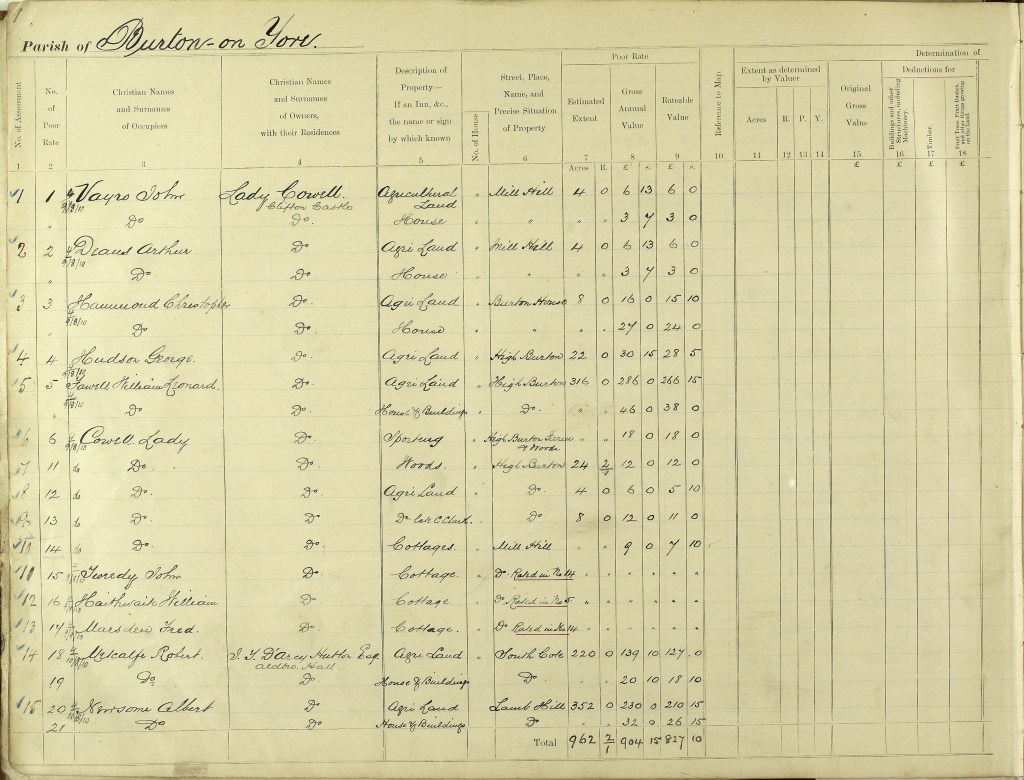 1
Parish of Burton-on Yore.
Determination of
Poor Rate
Extent as determined by Valuer
Deductions for
No. of Assessment
No. of Poor Rate
Christian Names and Surnames of Occupiers
Christian Names and Surnames of Owners, with their Residences
Description of Property— If an Inn, &c., the name or sign by which known
No. of House
Street, Place, Name, and Precise Situation of Property
Estimated Extent
Gross Annual Value
Rateable Value
Reference to Map
Acres R. P. Y.
Original Gross Value
Buildings and other Structures, including Machinery.
Timber.
Fruit Trees, Fruit Bushes, and other things growing on the Land.
1 2 3 4 5 6 7 8 9 10 11 12 13 14 15 16 17 18
Acres R. £ s. £ s. £ £ £ £
1 1 Vayro John Lady Cowell. Clifton Castle Agricultural Land " Mill Hill 4 0 6 13 6 0
" Do Do. House " " 3 7 3 0
2 2 Deans Arthur Do Agri Land " Mill Hill 4 0 6 13 6 0
" Do Do. House " " " " 3 7 3 0
3 3 Hammond Christopher Do. Agri Land " Burton House 8 0 16 0 15 10
" Do Do. House " " 27 0 24 0
4 4 Hudson George. Do. Agri Land " High Burton 22 0 30 15 28 5
5 5 William Leonard. Do. Agri Land " High Burton 316 0 286 0 266 15
" Do Do. House & Buildings " Do. " " 46 0 38 0
6 6 Cowell Lady Do. Sporting High Burton & Woods. " " 18 0 18 0
7 11 do Do. Do. Woods. " High Burton 24 2/1 12 0 12 0
8 12 do Do. Do. Agri Land " Do. 4 0 6 0 5 10
9 13 do Do. Do Do late C Clark. " Do 8 0 12 0 11 0
10 14 do Do. Do. Cottages. " Mill Hill " " 9 0 7 10
11 15 Tweedy John Do Cottage. " Do Rated in No 14 " " " " " "
12 16 Haithwaite William Do Cottage " Do Rated in No 5 " " " " " "
13 17 Marsden Fred. Do. Cottage. " Do Rated in No 14 " " " " " "
14 18 Metcalfe Robert. D'Arcy Hutton Esq. Aldbro Hall. Agri Land " South Cote 220 0 139 10 127 0
19 Do Do House & Buildings Do. " " 20 10 18 10
15 20 Newsome Albert Do Agri Land " Lamb Hill 352 0 230 0 210 15
21 Do Do House & Buildings Do " " 32 0 26 15
Total 962 2/1 904 15 827 10